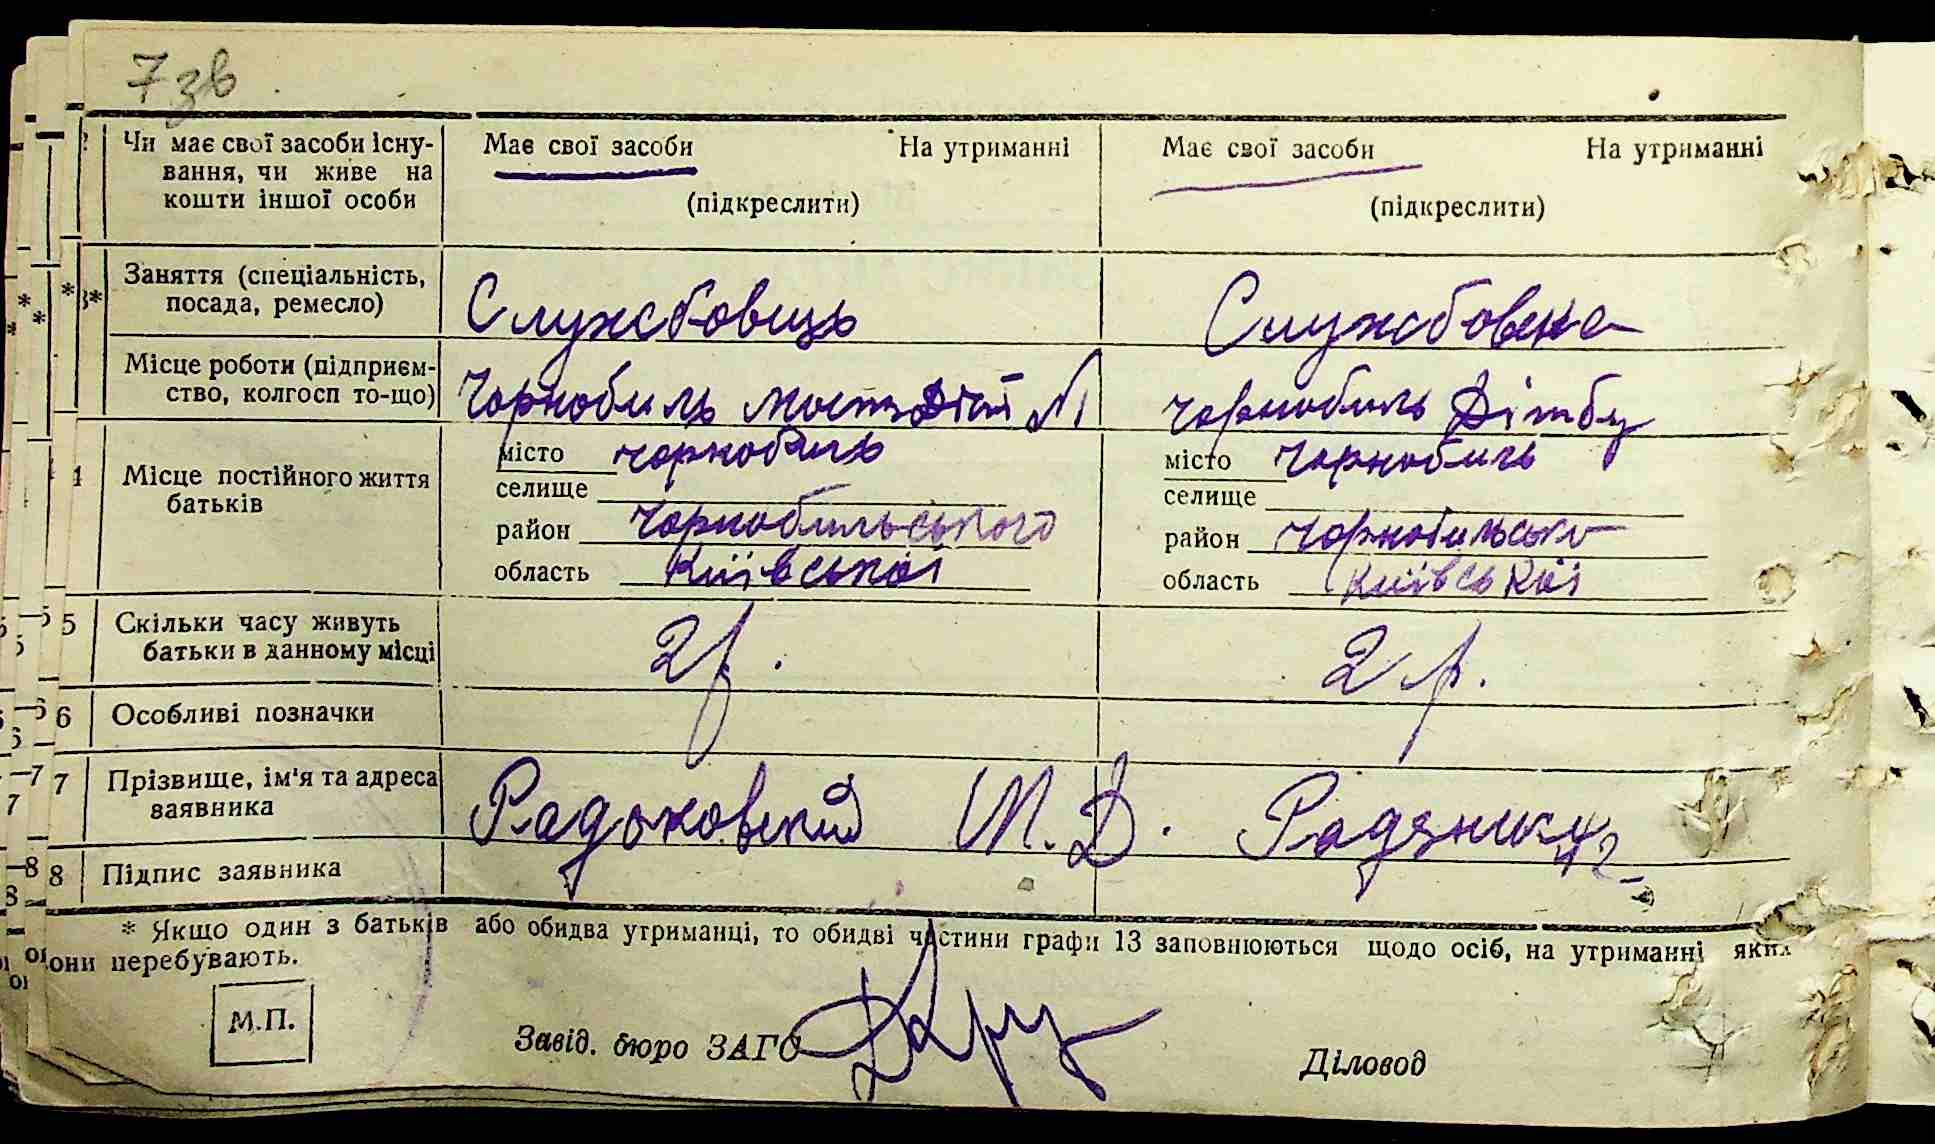 7 зв
Чи має свої засоби існу- Має свої засоби На утриманні Має свої засоби На утриманні
вання, чи живе на
кошти іншої особи (підкреслити) (підкреслити)
3* Заняття (спеціальність, Службовець Службовка
посада, ремесло)
Місце роботи (підприєм- Чорнобиль Чорнобиль
ство, колгосп то-що)
4 Місце постійного життя місто Чорнобиль місто Чорнобиль
батьків селище селище
район Чорнобильського район
область Київської область Київської
5 Скільки часу живуть 2 р. 2 р.
батьки в данному місці
6 Особливі позначки
7 Прізвище, ім'я та адреса М. Д.
заявника
8 Підпис заявника
* Якщо один з батьків або обидва утриманці, то обидві частини графи 13 заповнюються щодо осіб, на утриманні яких
вони перебувають.
М.П.
Завід. бюро ЗАГС Діловод